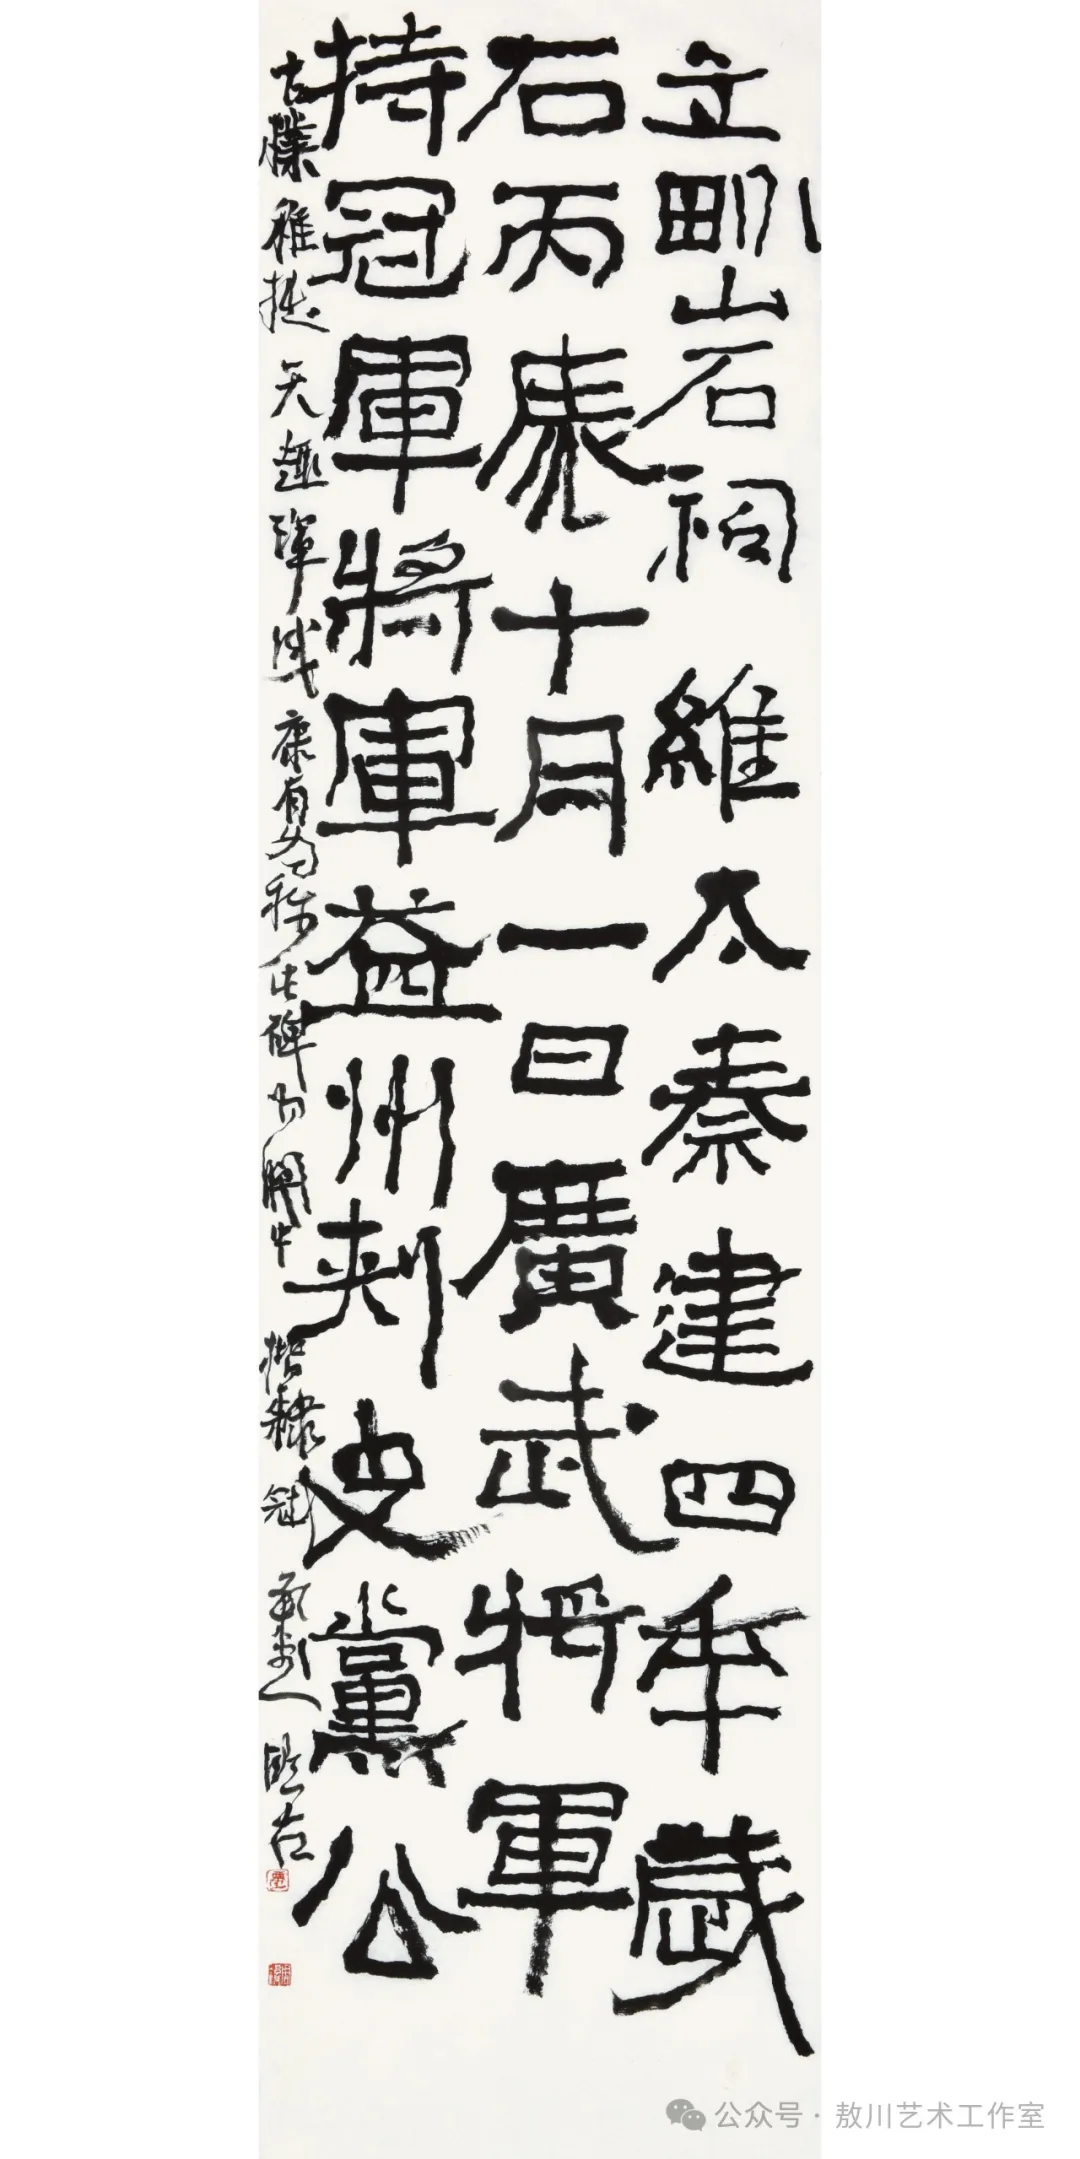 立畍山石祠 維大秦建四年歲
石丙辰十月一日廣武將軍
持冠軍將軍益州刺史黨公
古樸稚拙天趣渾成康有為稱此碑為關中楷隸冠
公众号 · 敖川艺术工作室